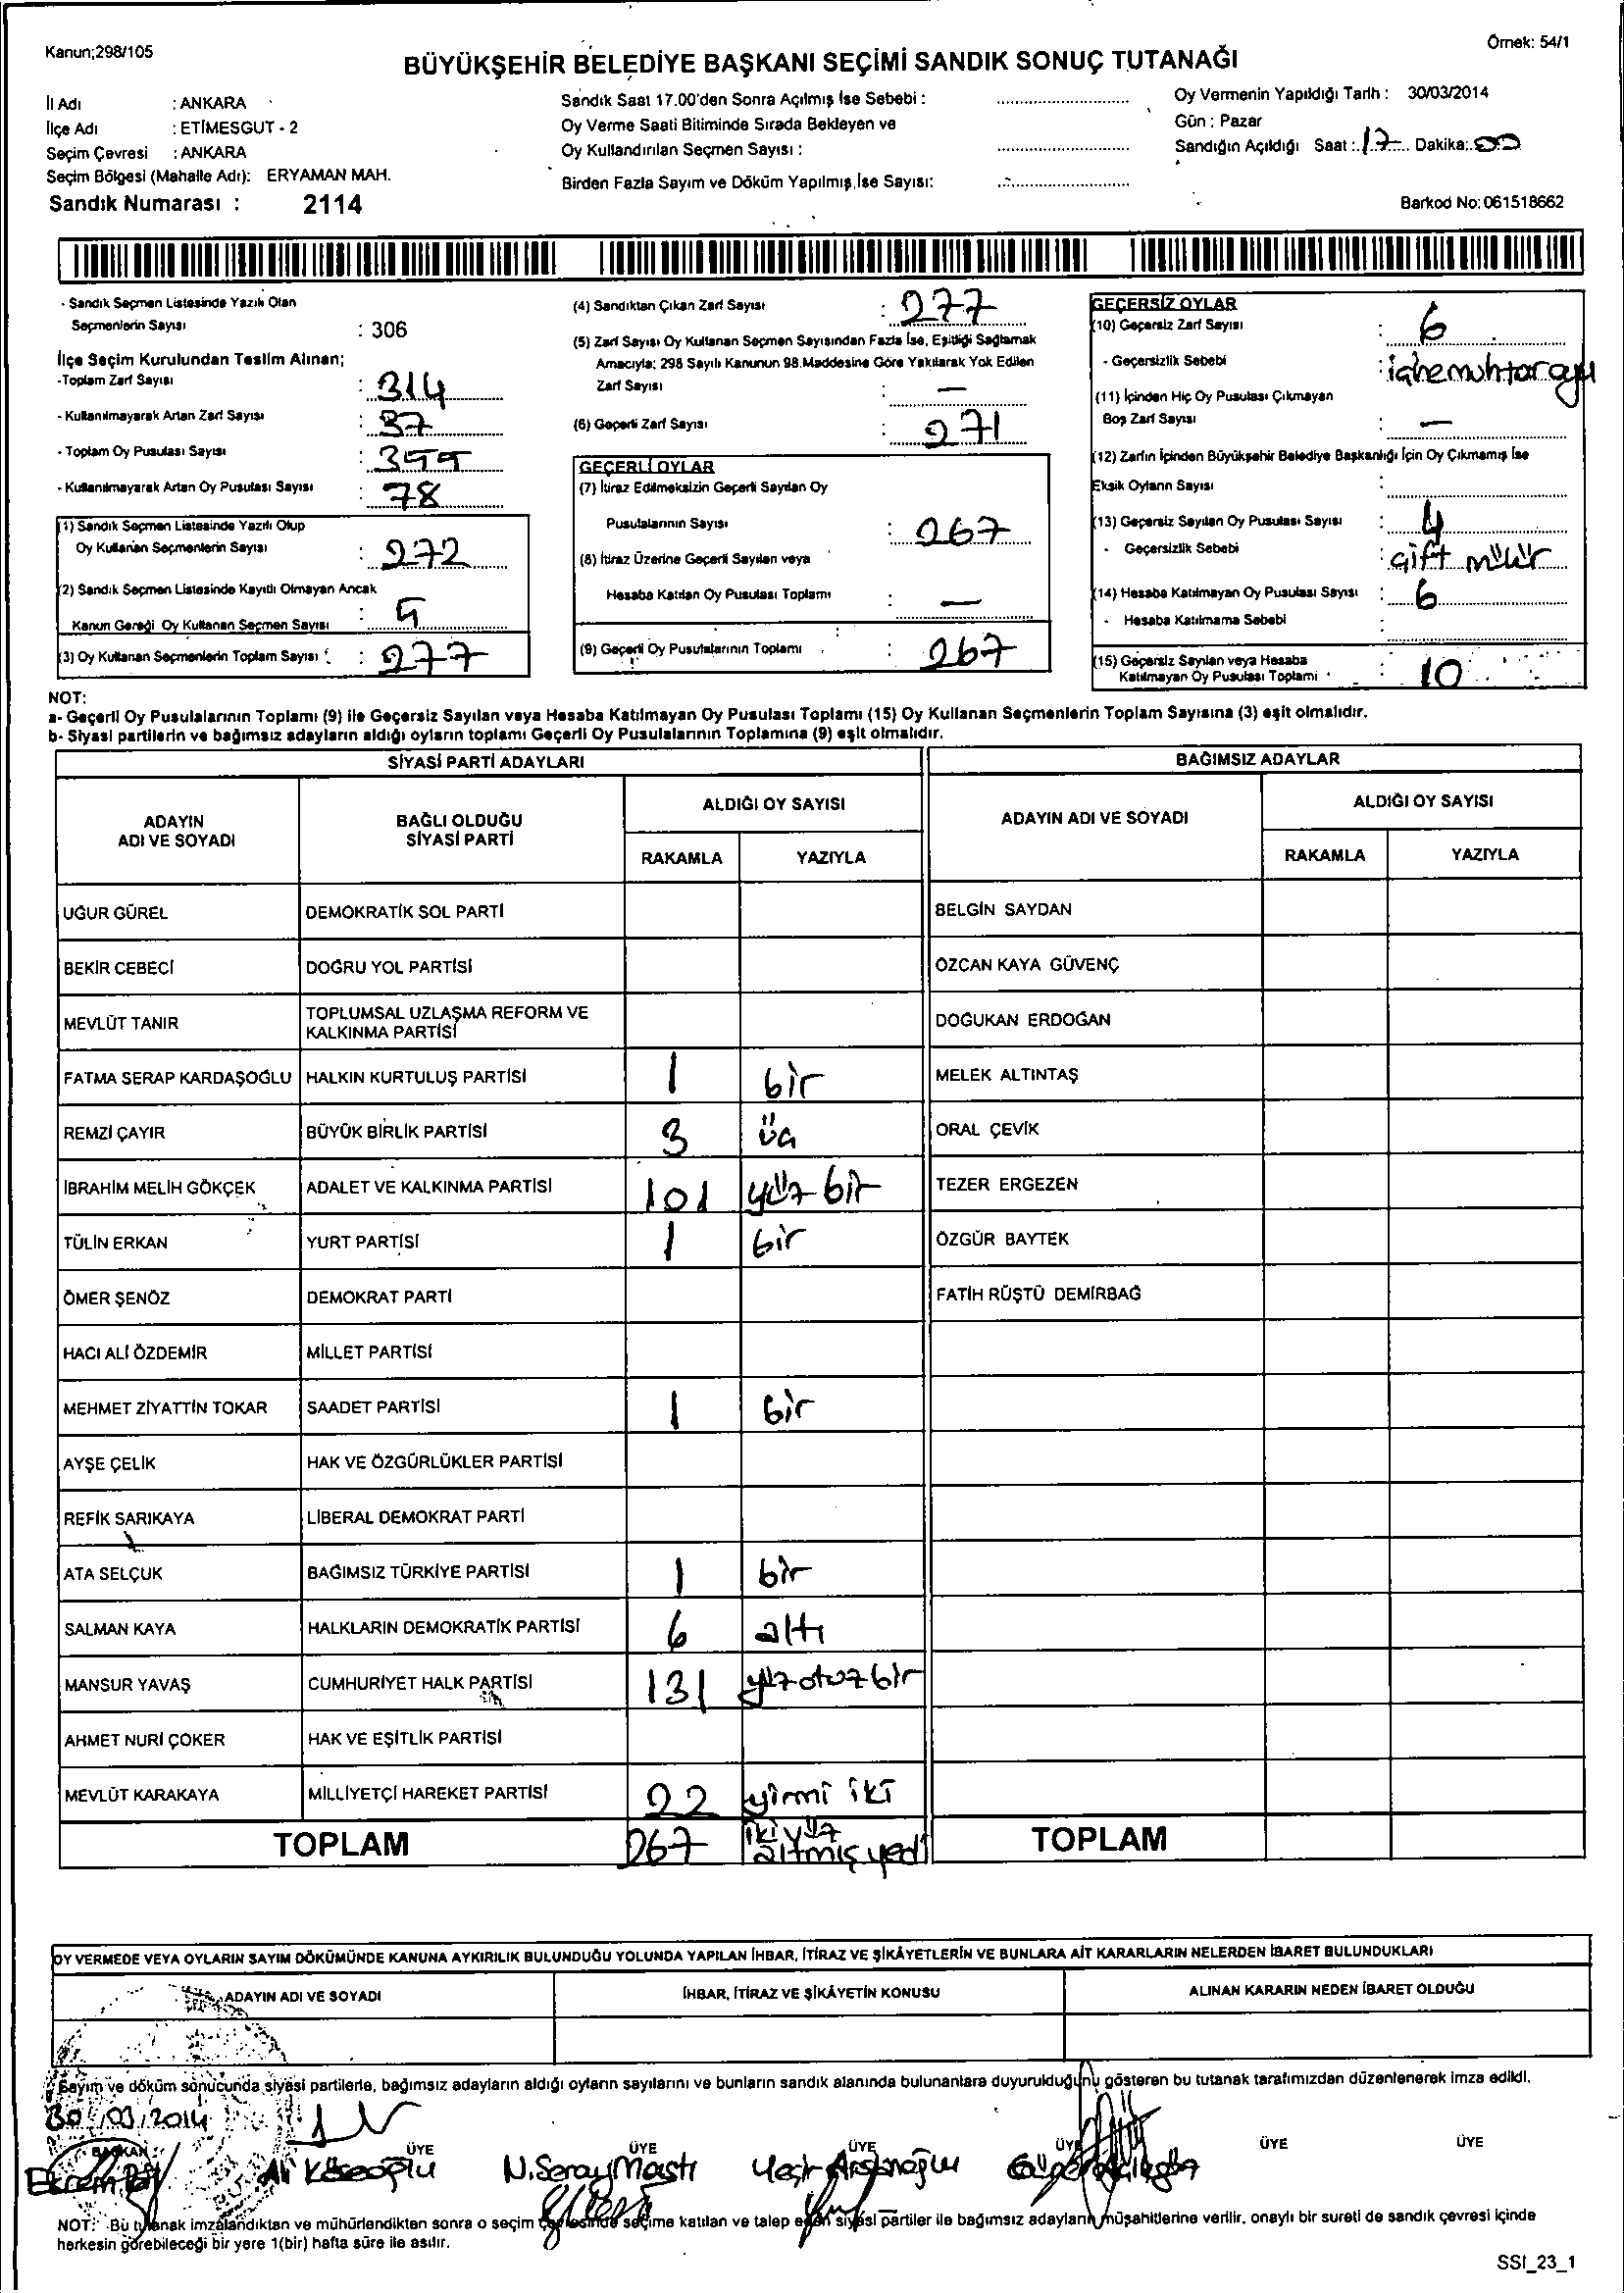 Kanun;298/105
Örnek: 54/1
BÜYÜKŞEHİR BELEDİYE BAŞKANI SEÇİMİ SANDIK SONUÇ TUTANAĞI
İl Adı : ANKARA
İlçe Adı : ETİMESGUT - 2
Seçim Çevresi : ANKARA
Seçim Bölgesi (Mahalle Adı): ERYAMAN MAH.
Sandık Numarası : 2114
Sandık Saat 17.00'den Sonra Açılmış İse Sebebi :
Oy Verme Saati Bitiminde Sırada Bekleyen ve
Oy Kullandırılan Seçmen Sayısı :
Birden Fazla Sayım ve Döküm Yapılmış İse Sayısı:
Oy Vermenin Yapıldığı Tarih : 30/03/2014
Gün : Pazar
Sandığın Açıldığı Saat : 17 Dakika: 00
Barkod No: 061518662
- Sandık Seçmen Listesinde Yazılı Olan
Seçmenlerin Sayısı : 306
İlçe Seçim Kurulundan Teslim Alınan;
-Toplam Zarf Sayısı : 314
- Kullanılmayarak Artan Zarf Sayısı : 37
- Toplam Oy Pusulası Sayısı : 355
- Kullanılmayarak Artan Oy Pusulası Sayısı : 78
(1) Sandık Seçmen Listesinde Yazılı Olup
Oy Kullanan Seçmenlerin Sayısı : 272
(2) Sandık Seçmen Listesinde Kayıtlı Olmayan Ancak
Kanun Gereği Oy Kullanan Seçmen Sayısı : 5
(3) Oy Kullanan Seçmenlerin Toplam Sayısı : 277
(4) Sandıktan Çıkan Zarf Sayısı : 277
(5) Zarf Sayısı Oy Kullanan Seçmen Sayısından Fazla İse, Eşitliği Sağlamak
Amacıyla; 298 Sayılı Kanunun 98.Maddesine Göre Yakılarak Yok Edilen
Zarf Sayısı : —
(6) Geçerli Zarf Sayısı : 271
GEÇERLİ OYLAR
(7) İtiraz Edilmeksizin Geçerli Sayılan Oy
Pusulalarının Sayısı : 267
(8) İtiraz Üzerine Geçerli Sayılan veya
Hesaba Katılan Oy Pusulası Toplamı : —
(9) Geçerli Oy Pusulalarının Toplamı : 267
GEÇERSİZ OYLAR
(10) Geçersiz Zarf Sayısı : 6
- Geçersizlik Sebebi :
(11) İçinden Hiç Oy Pusulası Çıkmayan
Boş Zarf Sayısı : —
(12) Zarfın İçinden Büyükşehir Belediye Başkanlığı İçin Oy Çıkmamış İse
Eksik Oyların Sayısı :
(13) Geçersiz Sayılan Oy Pusulası Sayısı : 4
- Geçersizlik Sebebi : çift mühür
(14) Hesaba Katılmayan Oy Pusulası Sayısı : 6
- Hesaba Katılmama Sebebi :
(15) Geçersiz Sayılan veya Hesaba
Katılmayan Oy Pusulası Toplamı : 10
NOT:
a- Geçerli Oy Pusulalarının Toplamı (9) ile Geçersiz Sayılan veya Hesaba Katılmayan Oy Pusulası Toplamı (15) Oy Kullanan Seçmenlerin Toplam Sayısına (3) eşit olmalıdır.
b- Siyasi partilerin ve bağımsız adayların aldığı oyların toplamı Geçerli Oy Pusulalarının Toplamına (9) eşit olmalıdır.
SİYASİ PARTİ ADAYLARI
BAĞIMSIZ ADAYLAR
ADAYIN
ADI VE SOYADI
BAĞLI OLDUĞU
SİYASİ PARTİ
ALDIĞI OY SAYISI
RAKAMLA YAZIYLA
ADAYIN ADI VE SOYADI
ALDIĞI OY SAYISI
RAKAMLA YAZIYLA
UĞUR GÜREL DEMOKRATİK SOL PARTİ BELGİN SAYDAN
BEKİR CEBECİ DOĞRU YOL PARTİSİ ÖZCAN KAYA GÜVENÇ
MEVLÜT TANIR TOPLUMSAL UZLAŞMA REFORM VE
KALKINMA PARTİSİ DOĞUKAN ERDOĞAN
FATMA SERAP KARDAŞOĞLU HALKIN KURTULUŞ PARTİSİ 1 bir MELEK ALTINTAŞ
REMZİ ÇAYIR BÜYÜK BİRLİK PARTİSİ 3 üç ORAL ÇEVİK
İBRAHİM MELİH GÖKÇEK ADALET VE KALKINMA PARTİSİ 101 yüz bir TEZER ERGEZEN
TÜLİN ERKAN YURT PARTİSİ 1 bir ÖZGÜR BAYTEK
ÖMER ŞENÖZ DEMOKRAT PARTİ FATİH RÜŞTÜ DEMİRBAĞ
HACI ALİ ÖZDEMİR MİLLET PARTİSİ
MEHMET ZİYATTİN TOKAR SAADET PARTİSİ 1 bir
AYŞE ÇELİK HAK VE ÖZGÜRLÜKLER PARTİSİ
REFİK SARIKAYA LİBERAL DEMOKRAT PARTİ
ATA SELÇUK BAĞIMSIZ TÜRKİYE PARTİSİ 1 bir
SALMAN KAYA HALKLARIN DEMOKRATİK PARTİSİ 6 altı
MANSUR YAVAŞ CUMHURİYET HALK PARTİSİ 131 yüz otuz bir
AHMET NURİ ÇOKER HAK VE EŞİTLİK PARTİSİ
MEVLÜT KARAKAYA MİLLİYETÇİ HAREKET PARTİSİ 22 yirmi iki
TOPLAM 267 iki yüz
altmış yedi TOPLAM
OY VERMEDE VEYA OYLARIN SAYIM DÖKÜMÜNDE KANUNA AYKIRILIK BULUNDUĞU YOLUNDA YAPILAN İHBAR, İTİRAZ VE ŞİKÂYETLERİN VE BUNLARA AİT KARARLARIN NELERDEN İBARET BULUNDUKLARI
ADAYIN ADI VE SOYADI İHBAR, İTİRAZ VE ŞİKÂYETİN KONUSU ALINAN KARARIN NEDEN İBARET OLDUĞU
Sayım ve döküm sonucunda siyasi partilerle, bağımsız adayların aldığı oyların sayılarını ve bunların sandık alanında bulunanlara duyurulduğunu gösteren bu tutanak tarafımızdan düzenlenerek imza edildi.
30/03/2014
BAŞKAN ÜYE ÜYE ÜYE ÜYE ÜYE ÜYE
Ekrem Ali Köseoğlu N.Seray Mastı
NOT: Bu tutanak imzalandıktan ve mühürlendikten sonra o seçim çevresinde seçime katılan ve talep eden siyasi partiler ile bağımsız adayların müşahitlerine verilir. onaylı bir sureti de sandık çevresi içinde
herkesin görebileceği bir yere 1(bir) hafta süre ile asılır.
SSI_23_1